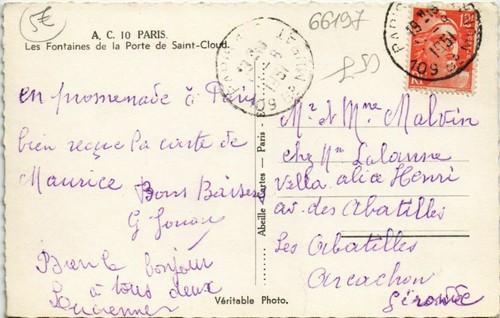 5€
66197
A. C. 10 PARIS.
Les Fontaines de la Porte de Saint-Cloud.
PARIS
109
1951
PARIS
109
1951
en promenade à Paris
bien reçue la carte de
Maurice Bons Baisers
G
Bien le bonjour
à tous deux
Abeille-Cartes - Paris
Mr et Mme Malvin
chez Mme Lalanne
Villa alice Henri
av. des Abatilles
Les Abatilles
Arcachon
Gironde
Véritable Photo.